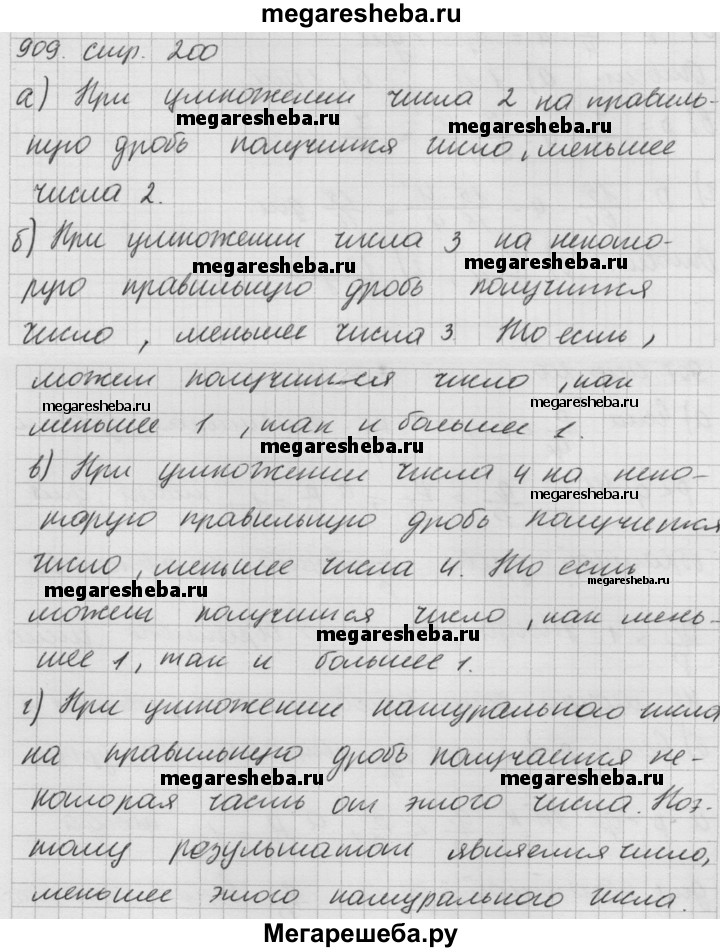 megaresheba.ru
909. стр. 200
а) При умножении числа 2 на правиль-
megaresheba.ru megaresheba.ru
ную дробь получится число, меньшее
числа 2.
б) При умножении числа 3 на некото-
megaresheba.ru megaresheba.ru
рую правильную дробь получится
число, меньшее числа 3. То есть,
может получиться число, как
megaresheba.ru megaresheba.ru
меньшее 1, так и большее 1.
megaresheba.ru
в) При умножении числа 4 на неко-
megaresheba.ru
торую правильную дробь получится
число, меньшее числа 4. То есть
megaresheba.ru megaresheba.ru
может получиться число, как мень-
megaresheba.ru
шее 1, так и большее 1.
г) При умножении натурального числа
на правильную дробь получается не-
megaresheba.ru megaresheba.ru
которая часть от этого числа. Поэ-
тому результатом является число,
меньшее этого натурального числа.
Мегарешеба.ру